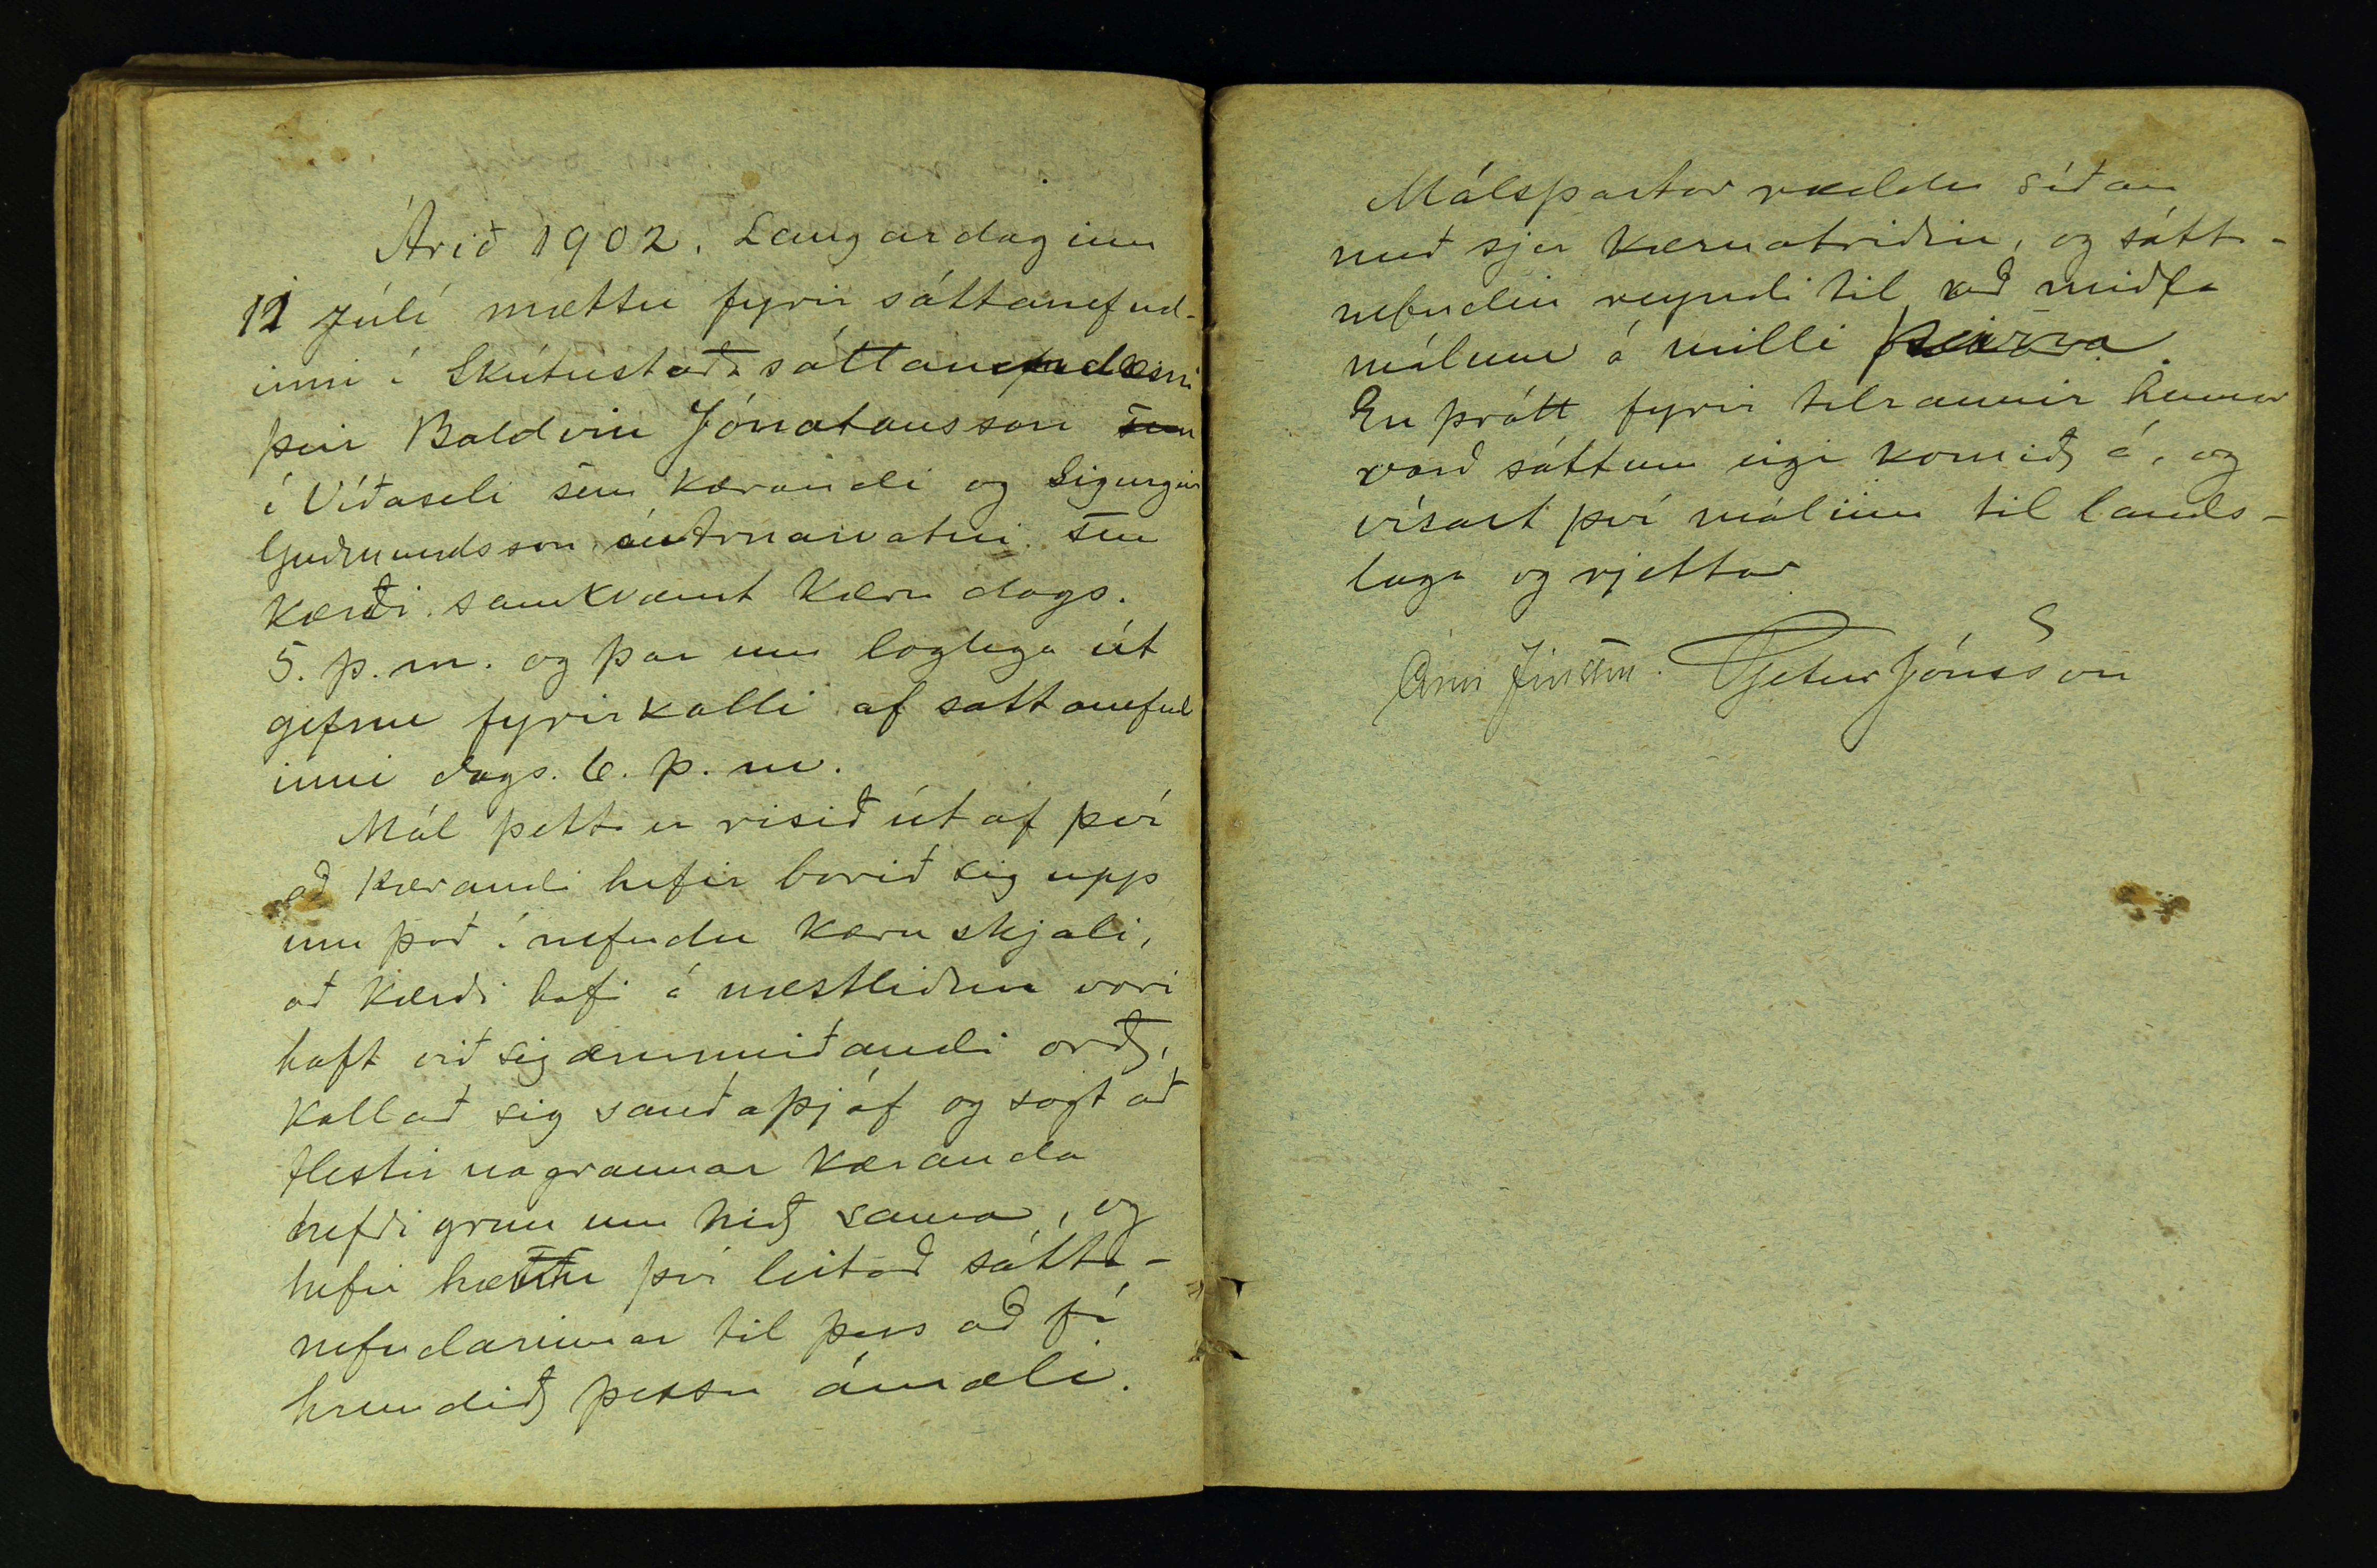 Árið 1902. Laugardaginn
12 Júlí mættu fyrir sáttanefnd-
inni í Skútustaða sáttaumdæmi
þeir Baldvin Jónatansson sem
í Víðaseli sem kærandi og Sigurgeir
Guðmundsson á Arnarvatni sem
kærði samkvæmt kæru dags.
5. þ. m. og þar um löglega út
gefnu fyrirkalli af sáttanefnd
inni dags. 6. þ. m.
Mál þetta er risið út af því
að kærandi hefir borið sig upp
um það í nefndu kæruskjali,
að kærði hafi á næstliðnu vori
haft við sig ærumeiðandi orð,
kallað sig sauðaþjóf og sagt að
flestir nágrannar kæranda
hefði grun um hið sama, og
hefir því leitað sátta-
nefndarinnar til þess að fá
hrundið þessu ámæli.
Málspartar ræddu síðan
með sjer kæruatriðin, og sátta-
nefndin reyndi til að miðla
málum á milli þeirra.
En þrátt fyrir tilraunir hennar
varð sáttum eigi komið á, og
vísast því málinu til lands-
laga og rjettar
Árni Jónsson. Pjetur Jónsson